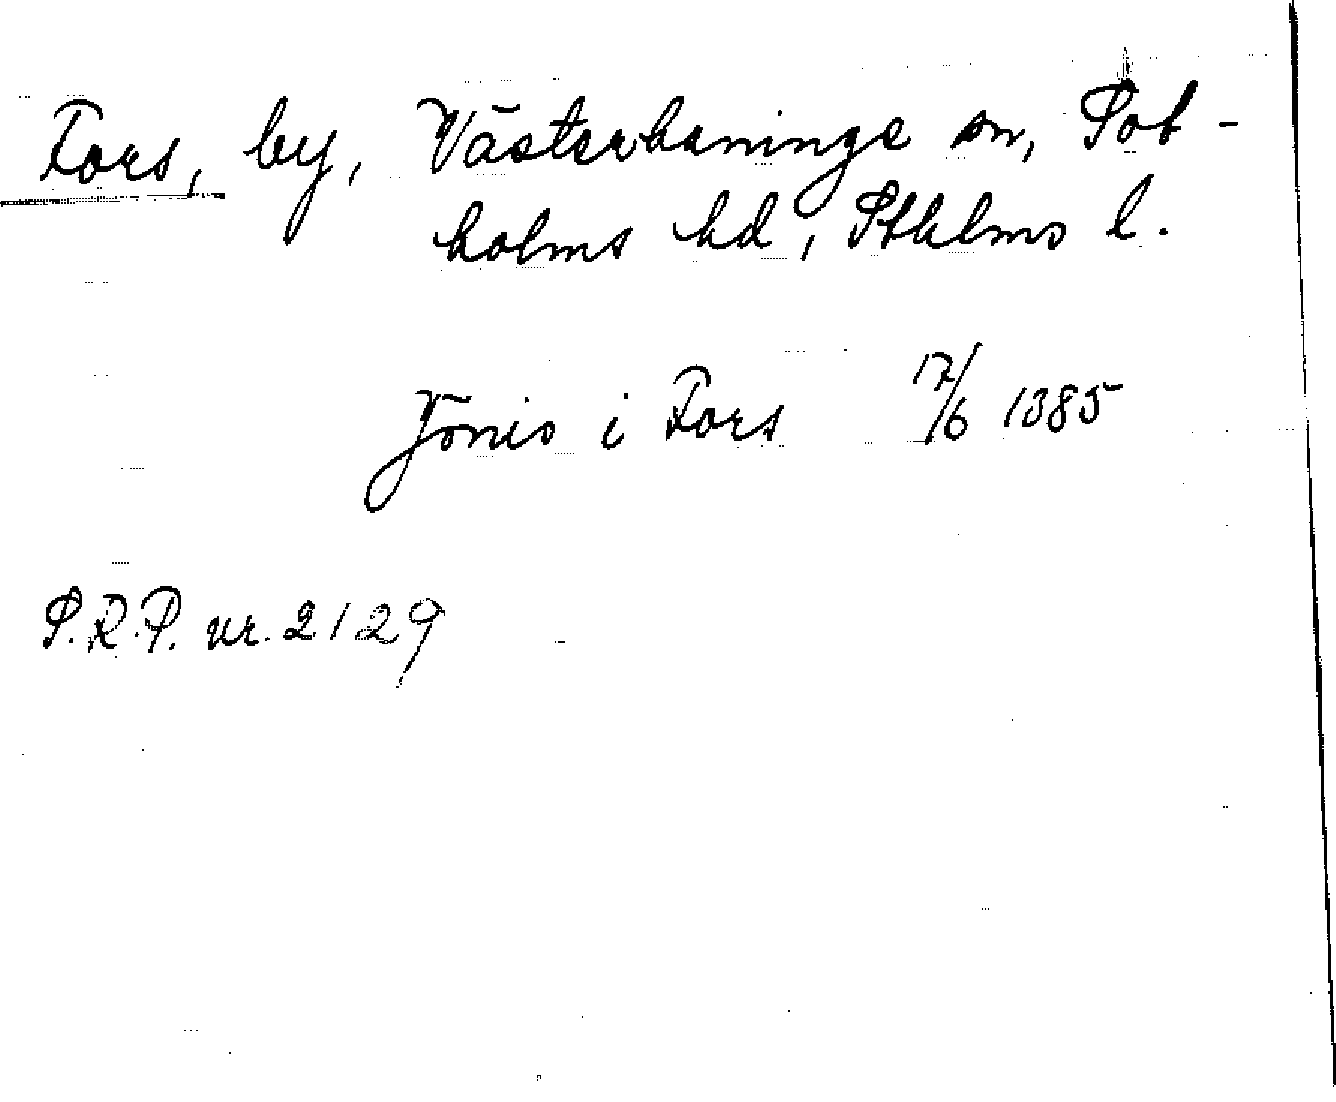 Fors, by, Västerhaninge sn, Sot-
holms hd, Sthlms l.
Jönis i Fors 17/6 1385
S.R.P. nr. 2129